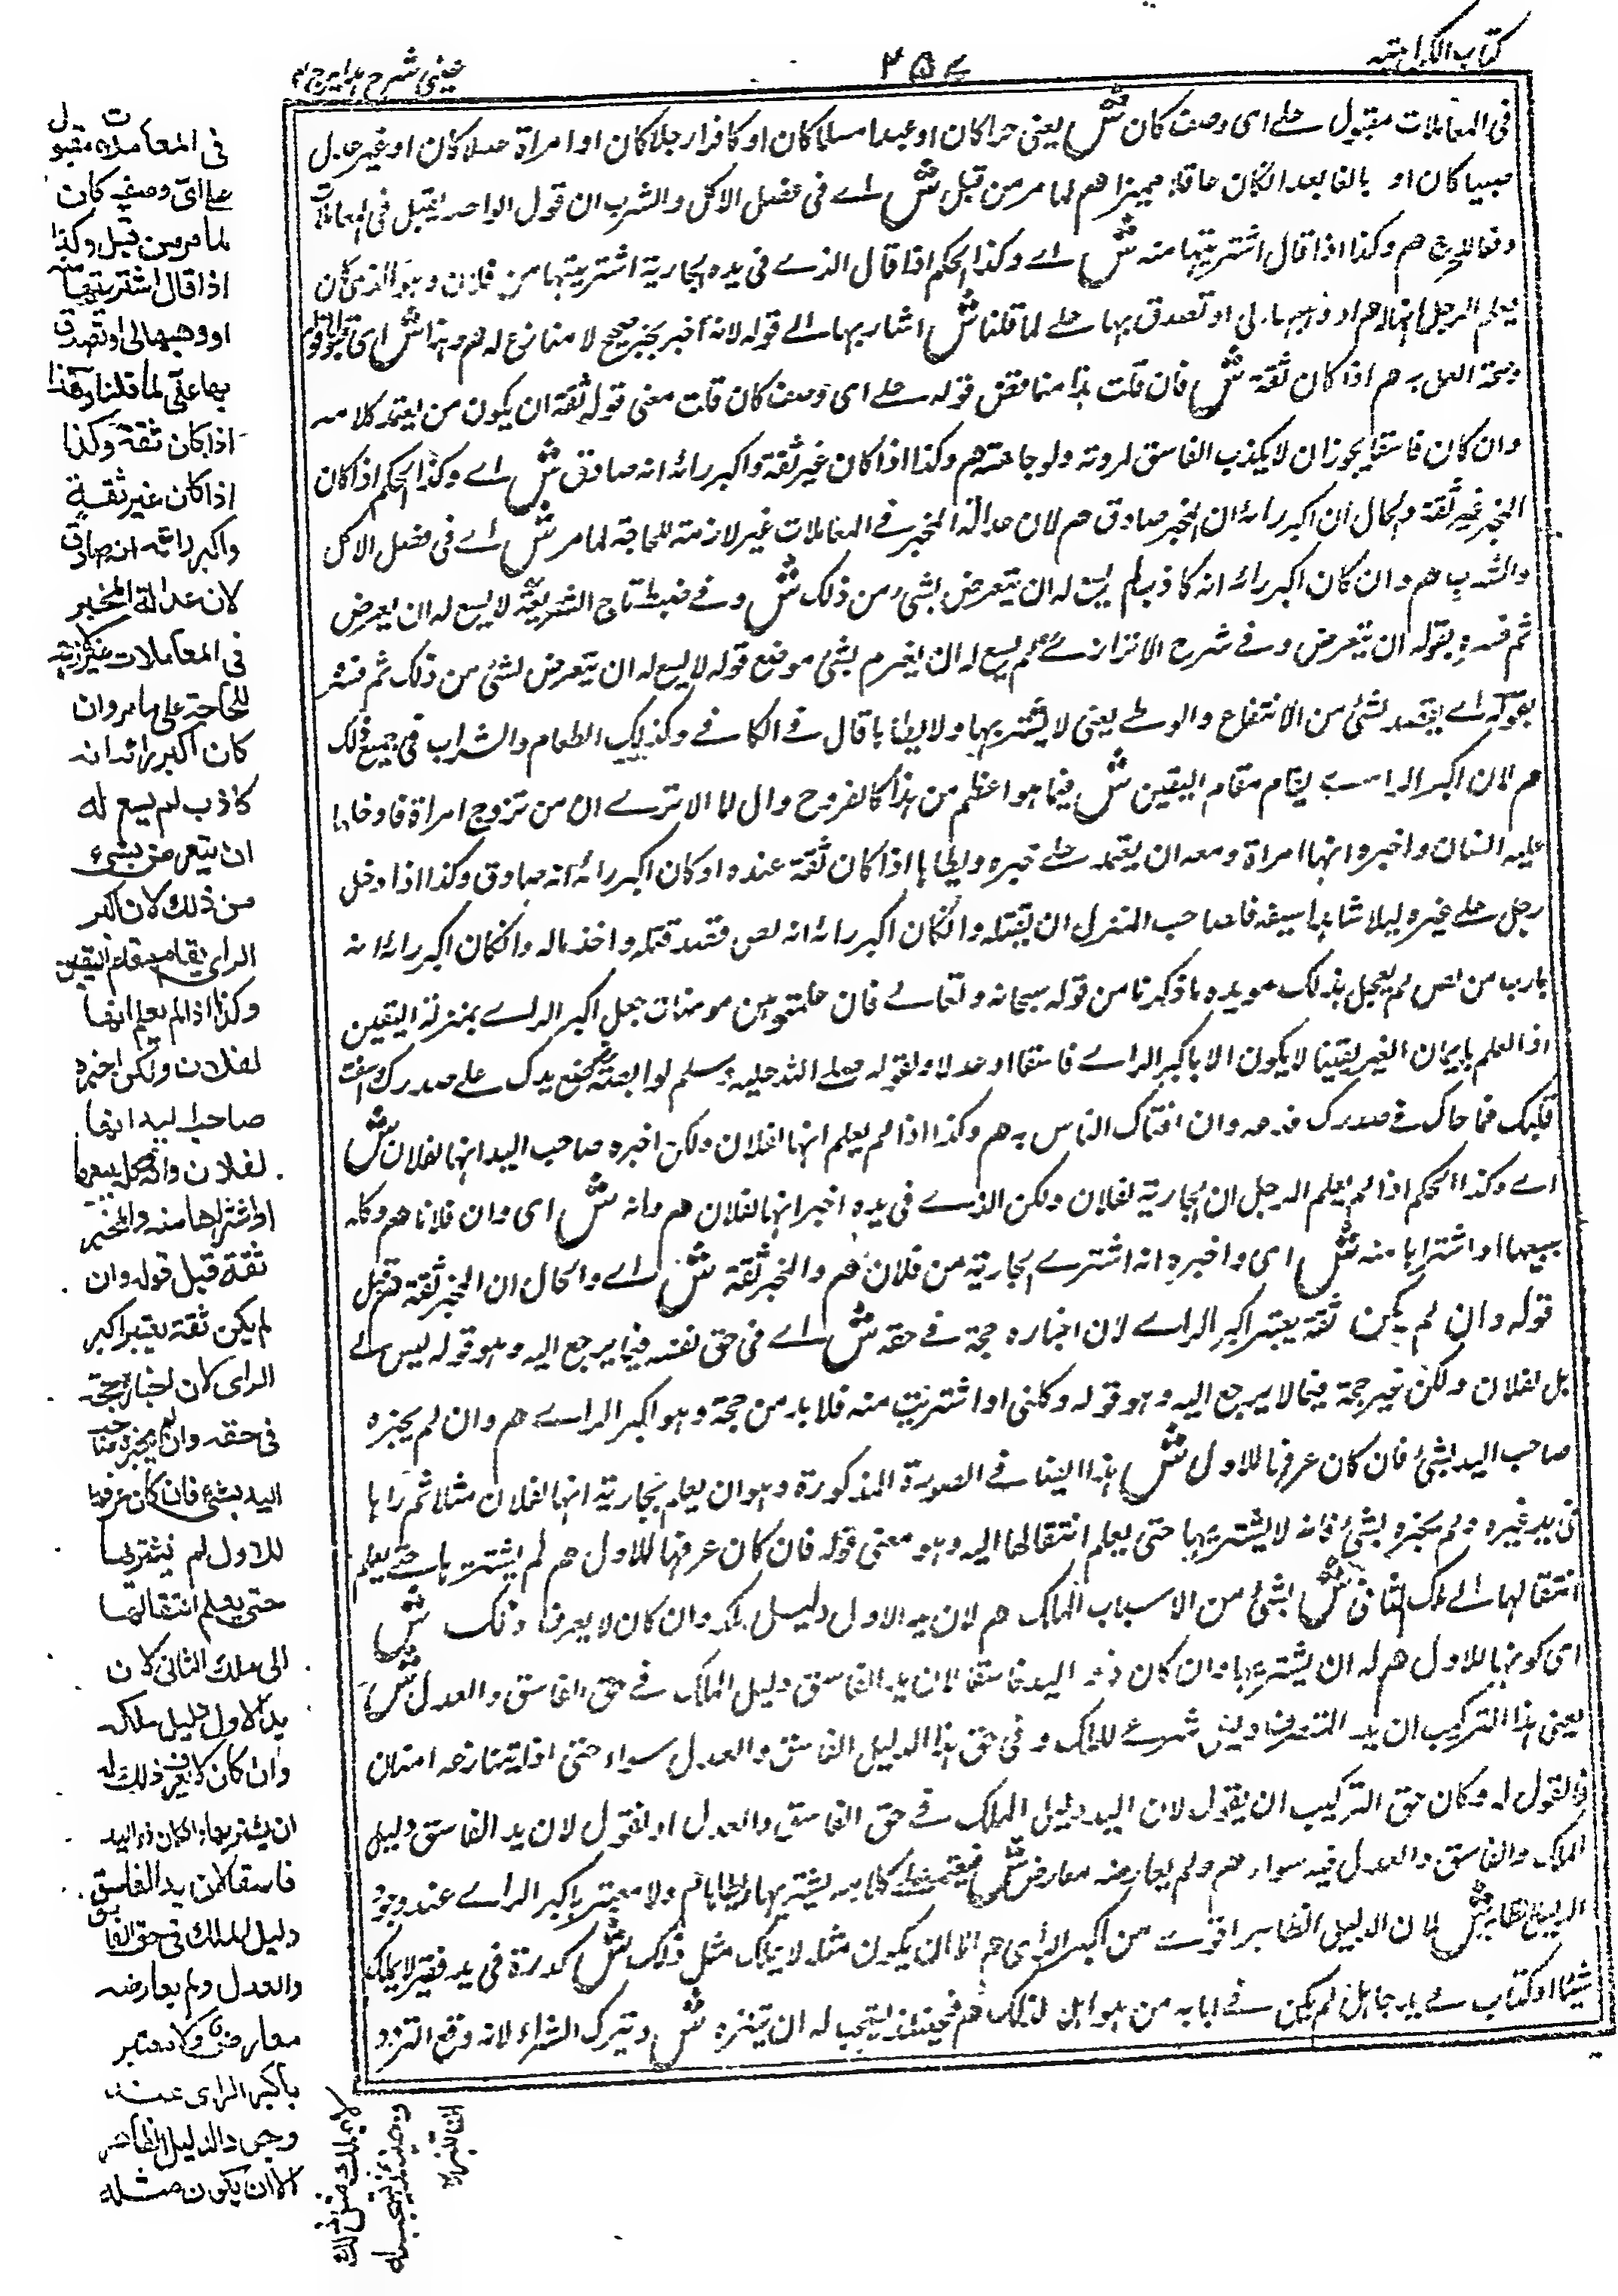 كتاب الكراهية
٢٥٧
عينى شرح هدايه ج ٤
فى المعاملات مقبول على اى وصف كان ش يعنى حرا كان او عبدا مسلما كان او كافرا رجلا كان او امراة عدلا كان او غير عادل
صبيا كان او بالغا بعد ان كان عاقلا مميزا هم لما مر من قبل ش اى فى فصل الاكل والشرب ان قول الواحد يقبل فى المعاملات
هم وكذا اذا قال اشتريتها منه ش اى وكذا الحكم اذا قال الذى فى يده الجارية اشتريتها من فلان وهو الذى كان
يعلم الرجل انها له هم او وهبها لى او تصدق بها على لما قلنا ش اشار بها الى قوله لانه اخبر بخبر صحيح لا منازع له هم وهذا ش اى
صحة العمل به هم اذا كان ثقة ش فان قلت هذا مناقض قوله على اى وصف كان قلت معنى قوله ثقة ان يكون من يعتمد كلامه
وان كان فاسقا يجوز ان لا يكذب الفاسق لمروته ولوجاهته هم وكذا اذا كان غير ثقة واكبر رائه انه صادق ش اى وكذا الحكم اذا كان
المخبر غير ثقة والحال ان اكبر رائه ان المخبر صادق هم لان عدالة المخبر فى المعاملات غير لازمة للحاجة لما مر ش اى فى فصل الاكل
والشرب هم وان كان اكبر رائه انه كاذب لم يسع له ان يتعرض بشئ من ذلك ش وفى ضبط تاج الشريعة لا يسع له ان يعرض
ثم فسره بقوله ان يتعرض وفى شرح الاترازى لم يسع له ان يغرم بشئ موضع قوله لا يسع له ان يتعرض لشئ من ذلك ثم فسر
بقوله اى يقصد بشئ من الانتفاع والوطى يعنى لا يشتريها ولا يطأها قال فى الكافى وكذلك الطعام والشراب فى جميع ذلك
هم لان اكبر الراى يقام مقام اليقين ش فيما هو اعظم من هذا كالفروج والدماء الا ترى ان من تزوج امراة فادخلها
عليه انسان واخبره انها امراة وسعه ان يعتمد على خبره ويطأها اذا كان ثقة عنده او كان اكبر رائه انه صادق وكذا اذا دخل
رجل على غيره ليلا شاهرا سيفه فلصاحب المنزل ان يقتله وان كان اكبر رائه انه لص قصد قتله واخذ ماله وان كان اكبر رائه انه
هارب من لص لم يعجل بذلك مويده ما ذكرنا من قوله سبحانه وتعالى فان علمتموهن مومنات جعل اكبر الراى بمنزلة اليقين
اذ العلم بايمان الغير يقينا لا يكون الا باكبر الراى فاسقا او عدلا ولقوله صلى الله عليه وسلم لوابصة ضع يدك على صدرك واستفت
قلبك فما حاك فى صدرك فدعه وان افتاك الناس به هم وكذا اذا لم يعلم انها لفلان ولكن اخبره صاحب اليد انها لفلان ش
اى وكذا الحكم اذا لم يعلم الرجل ان الجارية لفلان ولكن الذى فى يده اخبر انها لفلان هم وانه ش اى وان فلانا هم وكله
ببيعها او اشتراها منه ش اى واخبره انه اشترى الجارية من فلان هم والمخبر ثقة ش اى والحال ان المخبر ثقة هم قبل
قوله وان لم يكن ثقة يعتبر اكبر الراى لان اخباره حجة فى حقه ش اى فى حق نفسه فيما يرجع اليه وهو قوله ليس لى
بل لفلان ولكن غير حجة فيما لا يرجع اليه وهو قوله وكلنى او اشتريت منه فلا بد من حجة وهو اكبر الراى هم وان لم يخبره
صاحب اليد بشئ فان كان عرفها للاول ش هذا ايضا فى الصورة المذكورة وهو ان يعلم بجارية انها لفلان مثلا ثم رآها
فى يد غيره ولم يخبره بشئ فانه لا يشتريها حتى يعلم انتقالها اليه وهو معنى قوله فان كان عرفها للاول هم لم يشترها حتى يعلم
انتقالها الى ملك الثانى ش بشئ من الاسباب الملك هم لان يد الاول دليل ملكه وان كان لا يعرف ذلك ش
اى كونها للاول هم له ان يشتريها وان كان ذو اليد فاسقا لان يد الفاسق دليل الملك فى حق الفاسق والعدل ش
يعنى هذا التركيب ان يد التصرف دليل شرعى للملك وفى حق هذا الدليل الفاسق والعدل سواء حتى اذا تنازعه اثنان
فالقول له وكان حق التركيب ان يقول لان اليد دليل الملك فى حق الفاسق والعدل او نقول لان يد الفاسق دليل
الملك والفاسق والعدل فيه سواء هم ولم يعارضه معارض ش فيعتمد على كلامه يشتريها ويطأها هم ولا معتبر باكبر الراى عند وجود
الدليل الظاهر ش لان الدليل الظاهر اقوى من اكبر الراى هم الا ان يكون مثله لا يملك مثل ذلك ش كدرة فى يد فقير لا يملك
شيئا او كتاب فى يد جاهل لم يكن فى آبائه من هو اهل لذلك هم فحينئذ يستحب له ان يتنزه ش ويترك الشراء لانه وقع التردد
فى المعاملات مقبول
على اى وصف كان
لما مر من قبل وكذا
اذا قال اشتريتها منه
او وهبها لى او تصدق
بها على لما قلنا وهذا
اذا كان ثقة وكذا
اذا كان غير ثقة
واكبر رائه انه صادق
لان عدالة المخبر
فى المعاملات غير لازمة
للحاجة على ما مر وان
كان اكبر رائه انه
كاذب لم يسع له
ان يتعرض بشئ
من ذلك لان اكبر
الراى يقام مقام اليقين
وكذا اذا لم يعلم انها
لفلان ولكن اخبره
صاحب اليد انها
لفلان وانه وكله ببيعها
او اشتراها منه والمخبر
ثقة قبل قوله وان
لم يكن ثقة يعتبر اكبر
الراى لان اخباره حجة
فى حقه وان لم يخبره صاحب
اليد بشئ فان كان عرفها
للاول لم يشترها
حتى يعلم انتقالها
الى ملك الثانى لان
يد الاول دليل ملكه
وان كان لا يعرف ذلك له
ان يشتريها وان كان ذو اليد
فاسقا لان يد الفاسق
دليل الملك فى حق الفاسق
والعدل ولم يعارضه
معارض ولا معتبر
باكبر الراى عند
وجود الدليل الظاهر
الا ان يكون مثله
لا يملك مثل ذلك
فحينئذ يستحب له
ان يتنزه